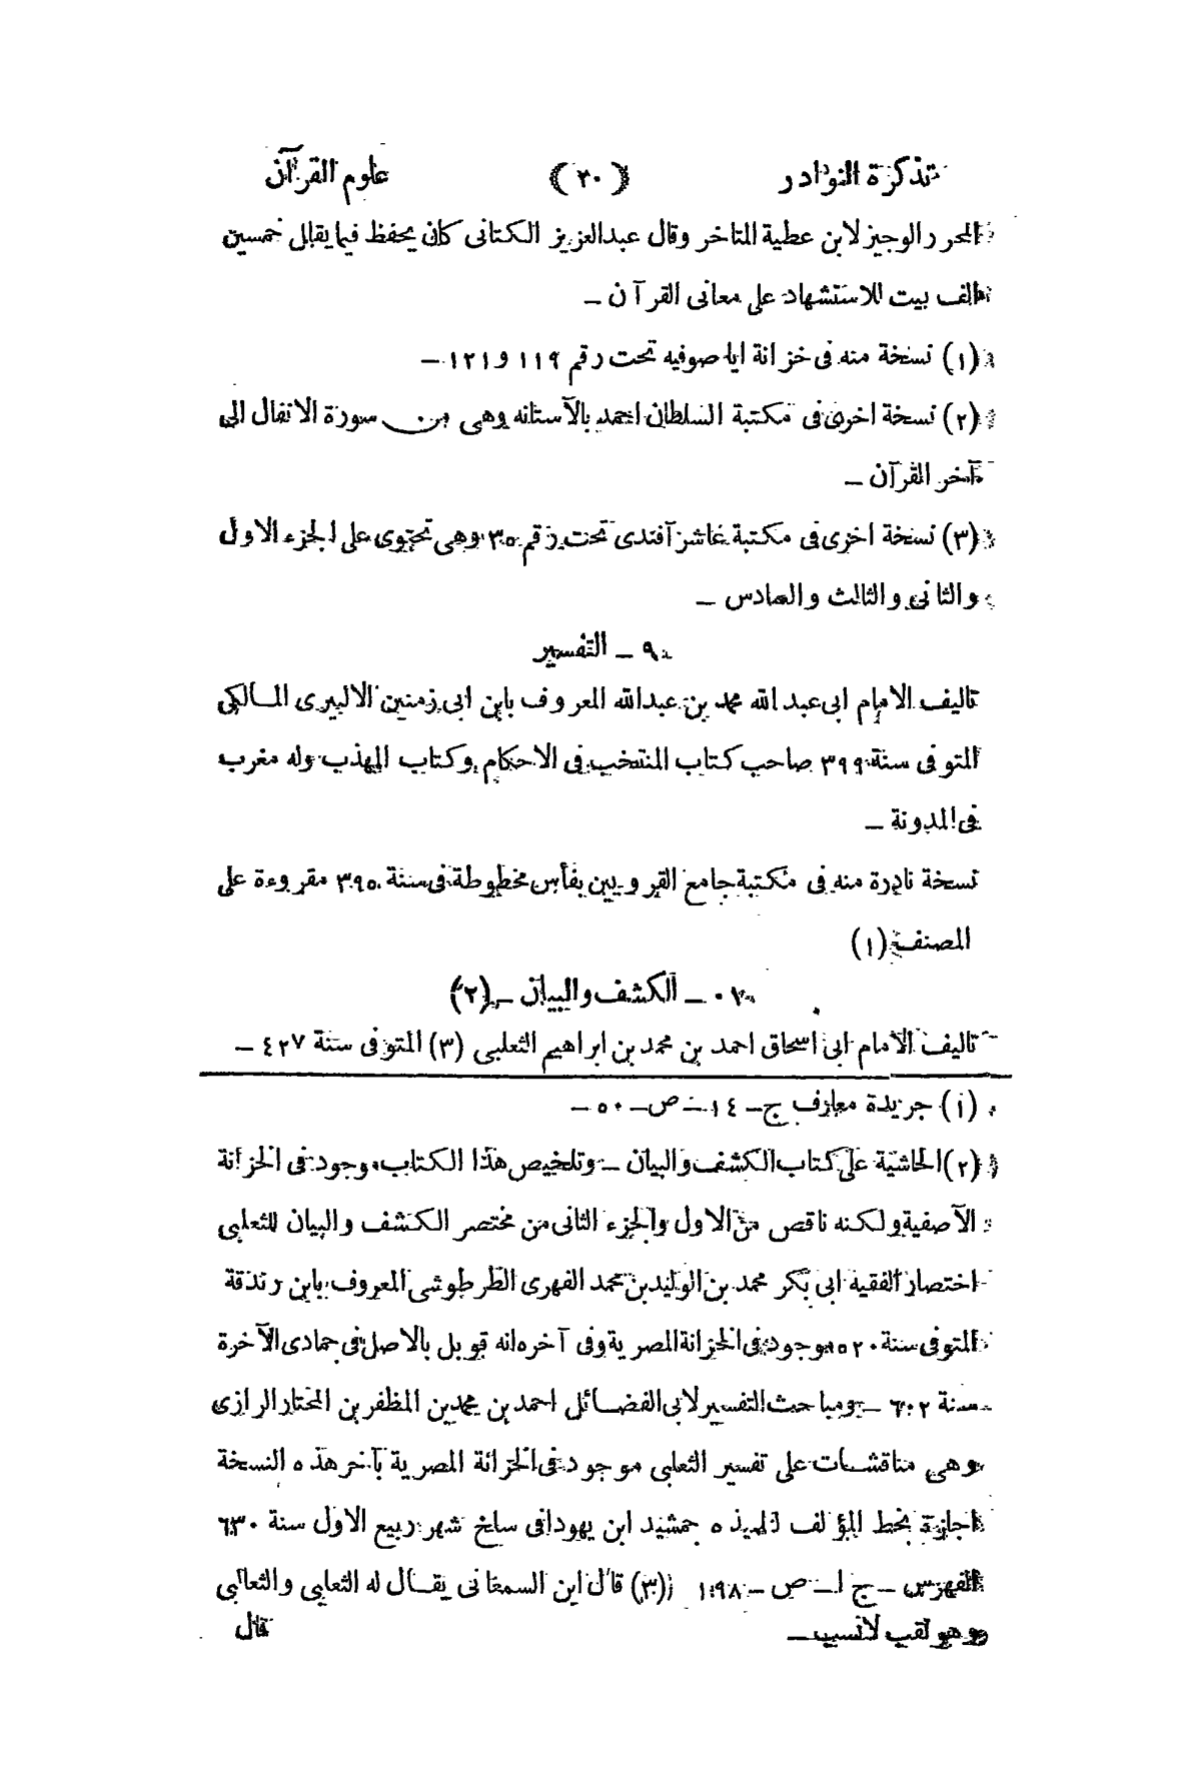 تذكرة النوادر (٢٠) علوم القرآن
المحرر الوجيز لابن عطية المتاخر وقال عبدالعزيز الكتانى كان يحفظ فيما يقابل خمسين
الف بيت للاستشهاد على معانى القرآن –
(١) نسخة منه فى خزانة ايا صوفيه تحت رقم ١١٩ و ١٢١ –
(٢) نسخة اخرى فى مكتبة السلطان احمد بالآستانه وهى من سورة الانفال الى
آخر القرآن –
(٣) نسخة اخرى فى مكتبة عاشر آفندى تحت رقم ٣٥ وهى تحتوى على الجزء الاول
والثانى والثالث والسادس –
٩ – التفسير
تاليف الامام ابى عبد الله محمد بن عبدالله المعروف بابن ابى زمنين الالبيرى المالكى
المتوفى سنة ٣٩٩ صاحب كتاب المنتخب فى الاحكام وكتاب المهذب وله مغرب
فى المدونة –
نسخة نادرة منه فى مكتبة جامع القرويين بفأس مخطوطة فى سنة ٣٩٥ مقروءة على
المصنف (١)
١٠ – الكشف والبيان – (٢)
تاليف الامام ابى اسحاق احمد بن محمد بن ابراهيم الثعلبى (٣) المتوفى سنة ٤٢٧ –
(١) جريدة معارف ج – ١٤ – ص – ٥٠ –
(٢) الحاشية على كتاب الكشف والبيان – وتلخيص هذا الكتاب موجود فى الخزانة
الآصفية ولكنه ناقص من الاول والجزء الثانى من مختصر الكشف والبيان للثعلبى
اختصار الفقيه ابى بكر محمد بن الوليد بن محمد الفهرى الطرطوشى المعروف بابن رندقة
المتوفى سنة ٥٢٠ موجود فى الخزانة المصرية وفى آخره انه قوبل بالاصل فى جمادى الآخرة
سنة ٦٠٢ – ومباحث التفسير لابى الفضائل احمد بن محمد بن المظفر بن المختار الرازى
وهى مناقشات على تفسير الثعلبى موجود فى الخزانة المصرية بآخر هذه النسخة
اجازة بخط المؤلف لتلميذه جمشيد ابن يهودا فى سلخ شهر ربيع الاول سنة ٦٣٠
الفهرس – ج ١ – ص – ١٩٨ (٣) قال ابن السمعانى يقال له الثعلبى والثعالبى
وهو لقب لا نسب – قال